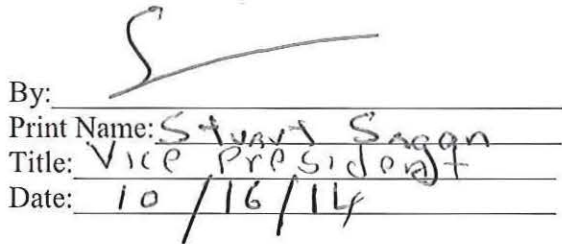 By:
Print Name: Stuart Sagan
Title: Vice President
Date: 10/16/14